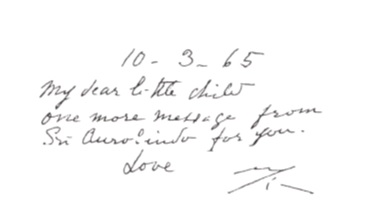 10 - 3 - 65
My dear little child
one more message from
Sri Aurobindo for you.
Love